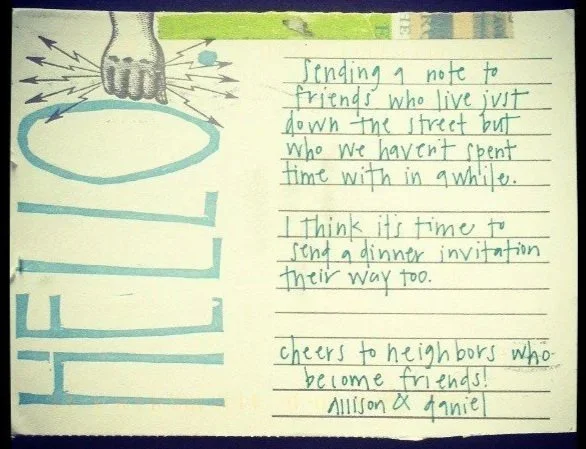 HELLO
Sending a note to
friends who live just
down the street but
who we haven't spent
time with in awhile.
I think it's time to
send a dinner invitation
their way too.
cheers to neighbors who
become friends!
Allison & daniel